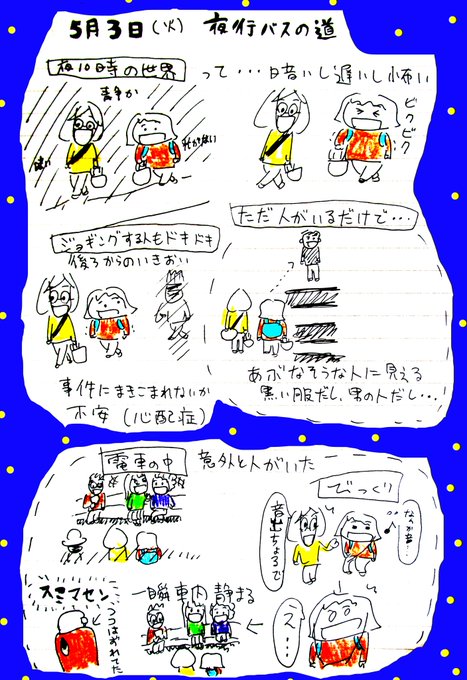 5月3日(火) 夜行バスの道
夜10時の世界
って…暗いし遅いし怖い
静か
ビクビク
ジョギングする人もドキドキ
後ろからのいきおい
事件にまきこまれないか
不安(心配症)
ただ人がいるだけで…
あぶなそうな人に見える
黒い服だし、男の人だし…
電車の中
意外と人がいた
びっくり
音出ちょるで
スミマセン
一瞬車内静まる